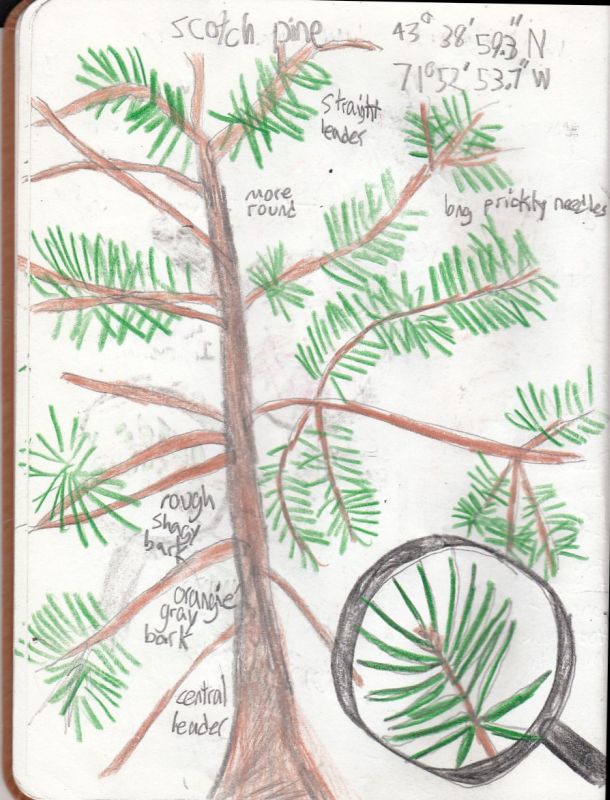 scotch pine
43° 38' 59.3" N
71° 52' 53.7" W
straight
leader
more
round
long prickly needles
rough
shagy
bark
orangie
gray
bark
central
leader